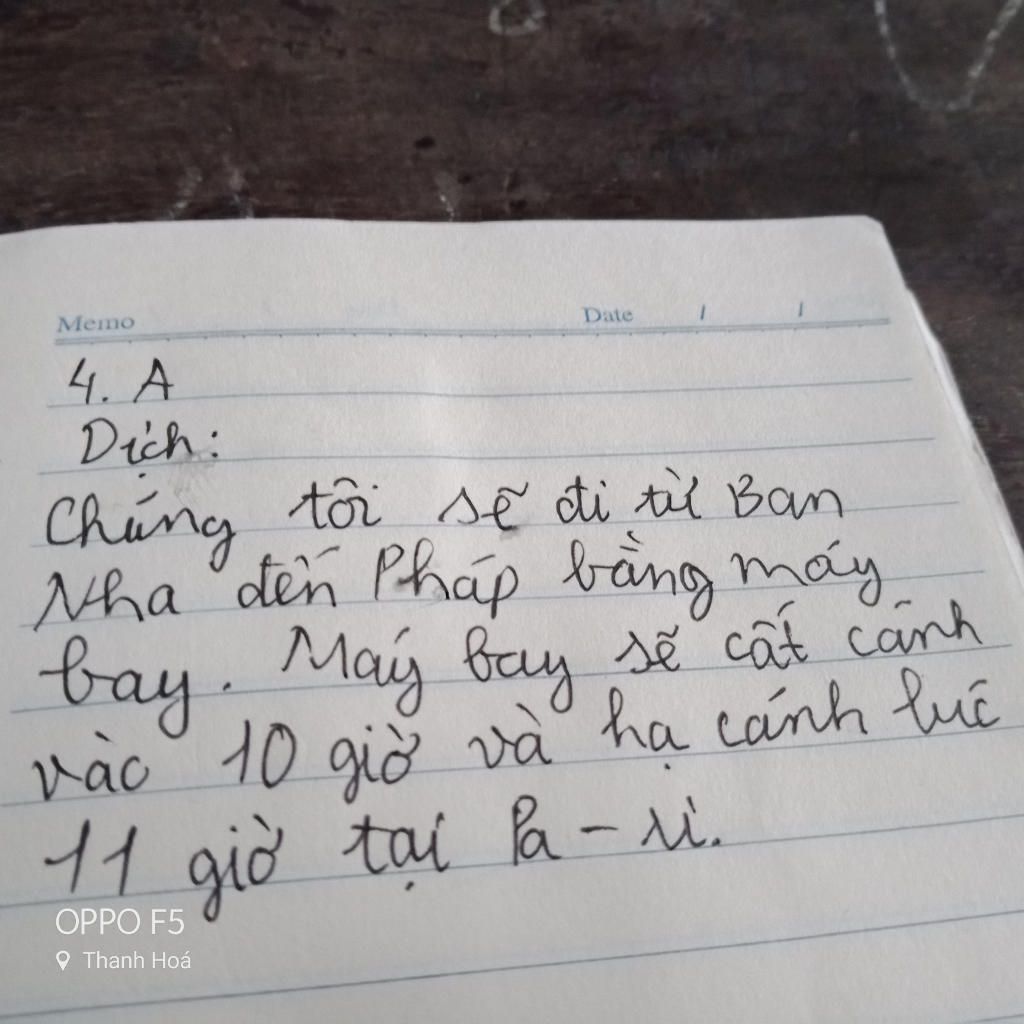 Memo Date / /
4. A
Dịch:
Chúng tôi sẽ đi từ Ban
Nha đến Pháp bằng máy
bay. Máy bay sẽ cất cánh
vào 10 giờ và hạ cánh lúc
11 giờ tại Pa-ri.
OPPO F5
Thanh Hoá